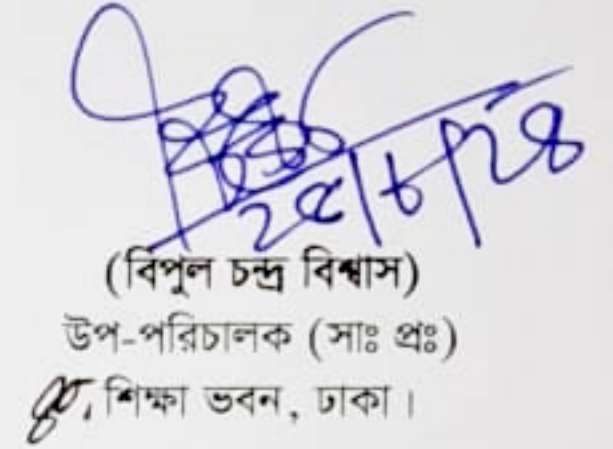 ২৫/৮/২৪
(বিপুল চন্দ্র বিশ্বাস)
উপ-পরিচালক (সাঃ প্রঃ)
শিক্ষা ভবন, ঢাকা।